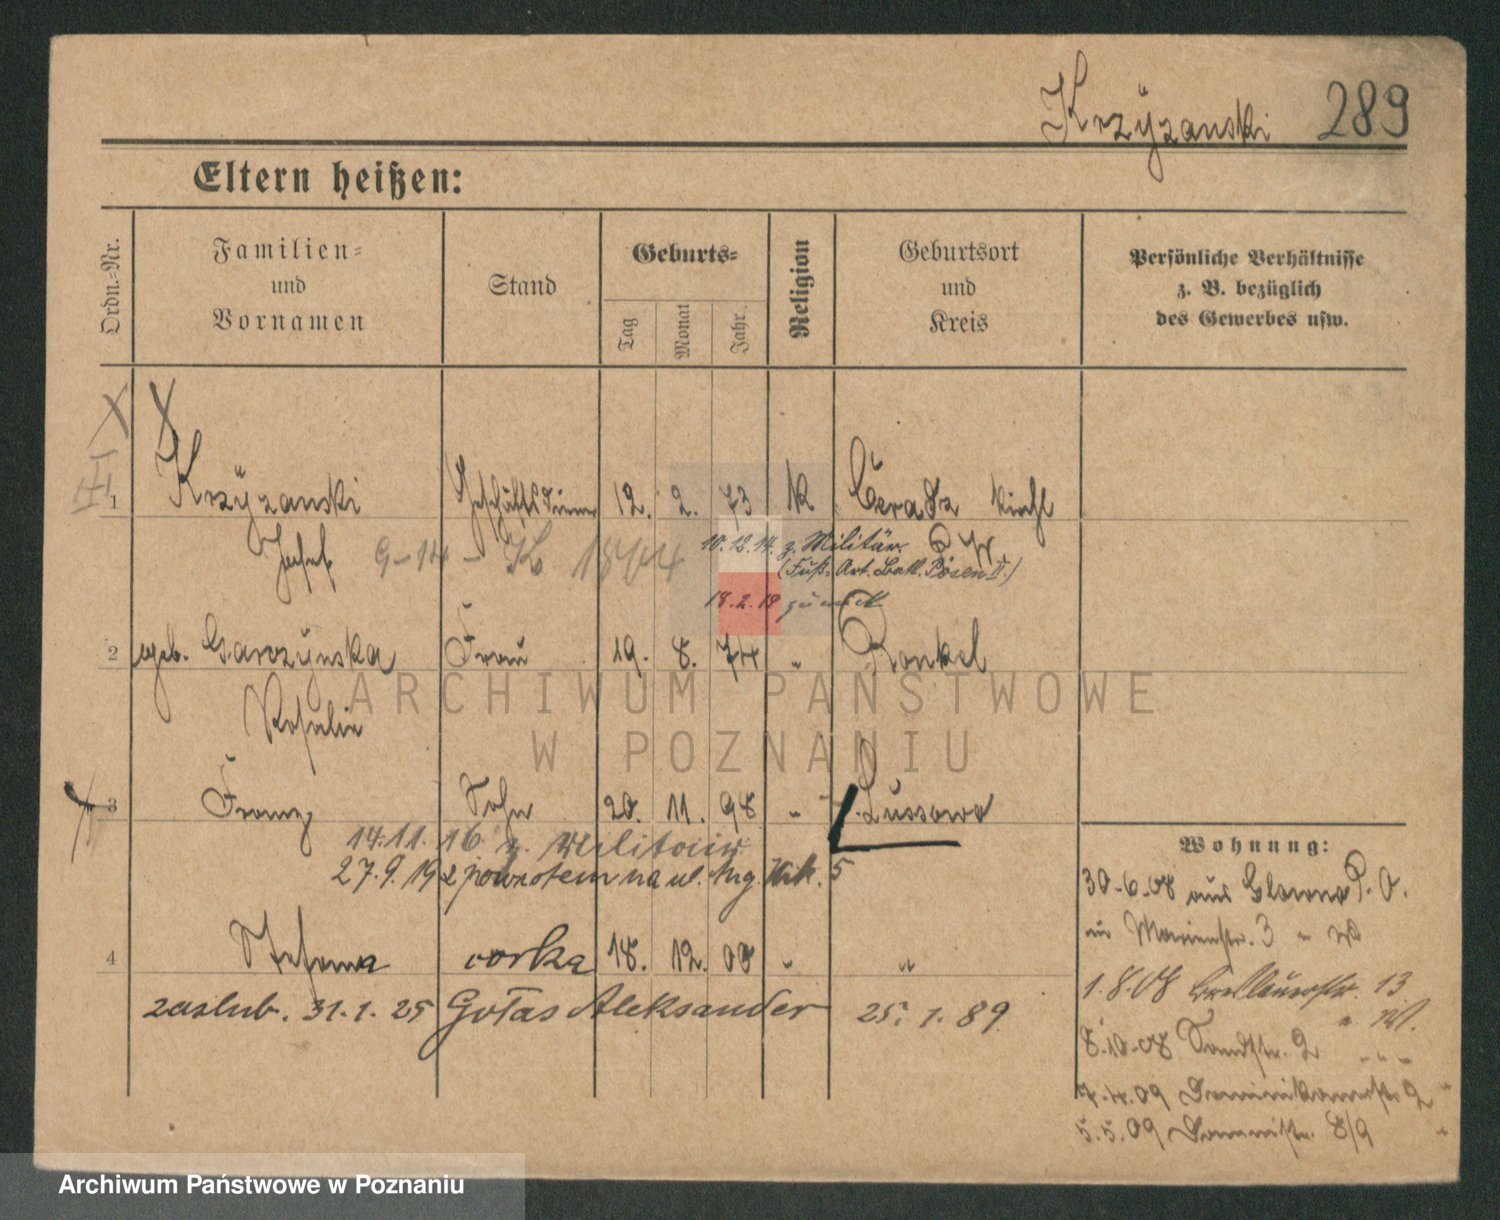 Krzÿzanski 289
Eltern heißen:
Ordn.-Nr.
Familien-
und
Vornamen
Stand
Geburts-
Tag
Monat
Jahr.
Religion
Geburtsort
und
Kreis
Persönliche Verhältnisse
z. B. bezüglich
des Gewerbes usw.
1 Krzÿzanski Geschäftsdiener 12. 2. 73 K Ceradz kirchl
Josef
10.12.14. z. Militär. P W
(Fuß. Art. Batl. Posen II.)
18.2.19 zurück
2 geb. Garczÿnska Frau 19. 8. 74 " Ronkel
Rosalie
3 Franz Sohn 20. 11. 98 " Lussowo
14.11.16 z. Militair
27.9.19 z powrotem na ul.
4 Stefania corka 18. 12. 00 " "
zaslub. 31.1.25 Gołas Aleksander 25. 1. 89
Wohnung:
30-6-08 aus Glowno P. O.
in Marienstr. 3
1.8.08 13
8.10.08 Sandstr. 2 " " "
7.4.09 Dominikanerstr. 2 "
5.5.09 8/9 "
ARCHIWUM PAŃSTWOWE
W POZNANIU
Archiwum Państwowe w Poznaniu